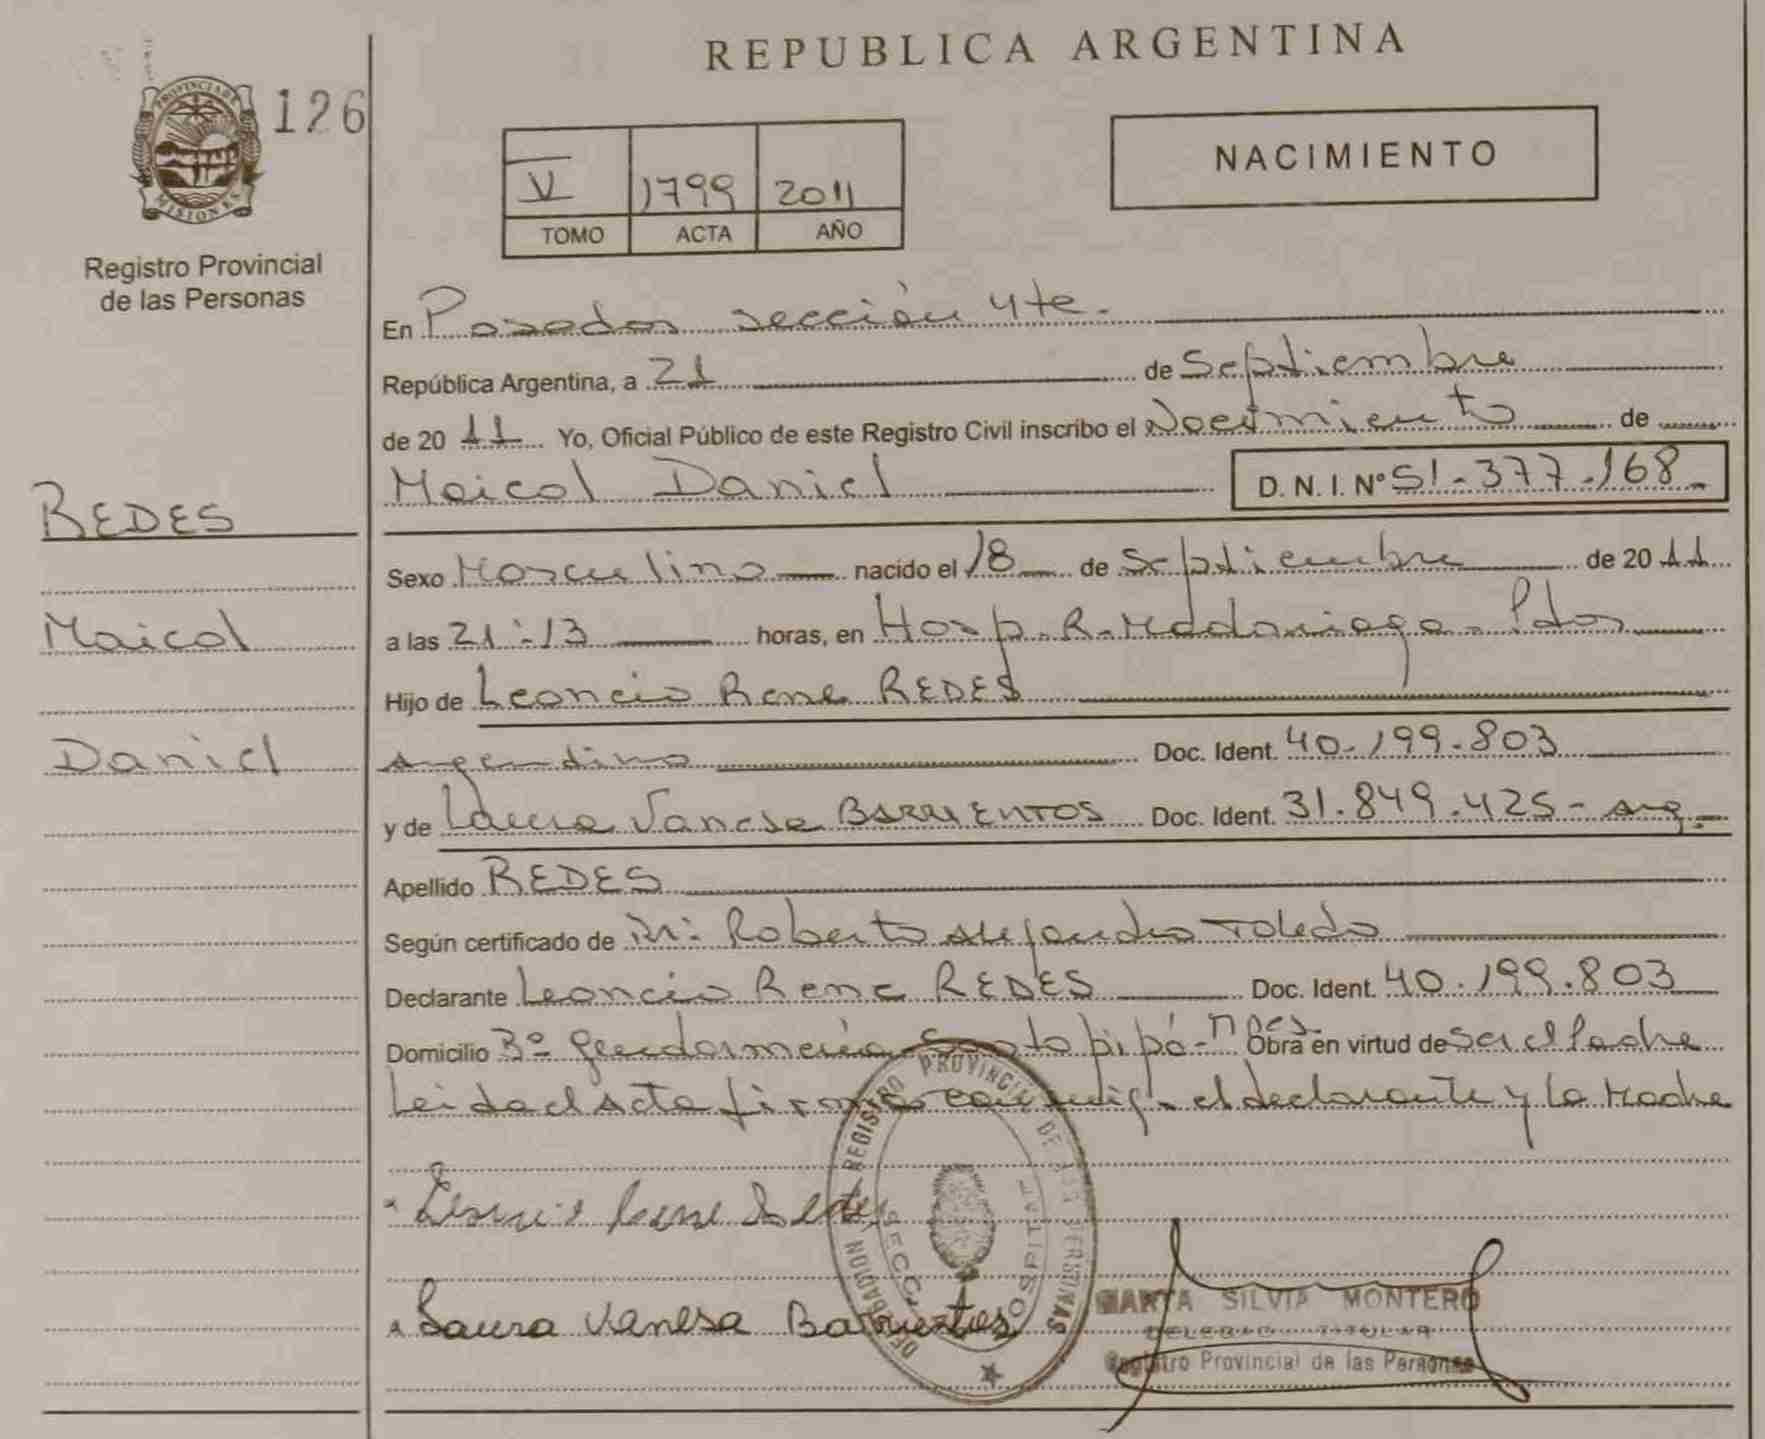 REPUBLICA ARGENTINA
PROVINCIA DE
MISIONES
126
Registro Provincial
de las Personas
V 1799 2011
TOMO ACTA AÑO
NACIMIENTO
En Posadas sección 4te.
República Argentina, a 21 de Septiembre
de 20 11 Yo, Oficial Público de este Registro Civil inscribo el Nacimiento de
Maicol Daniel D. N. I. Nº 51-377-168
REDES
Maicol
Daniel
Sexo Masculino nacido el 18 de Septiembre de 20 11
a las 21:13 horas, en Hosp. R. Madariaga - Pdas
Hijo de Leoncio Rene REDES
Argentino Doc. Ident. 40.199.803
y de Laura Vanesa BARRIENTOS Doc. Ident. 31.849.425 - arg.
Apellido REDES
Según certificado de Roberto Alejandro Toledo
Declarante Leoncio Rene REDES Doc. Ident. 40.199.803
Domicilio 3º Gendarmería Santo pipó - Mnes. Obra en virtud de ser el Padre
Leida el Acta firman conmigo el declarante y la Madre
REGISTRO PROVINCIAL DE LAS PERSONAS
DELEGACION
SECC.
HOSPITAL
Laura Vanesa Barrientos
MARTA SILVIA MONTERO
DELEGAD TITULAR
Registro Provincial de las Personas